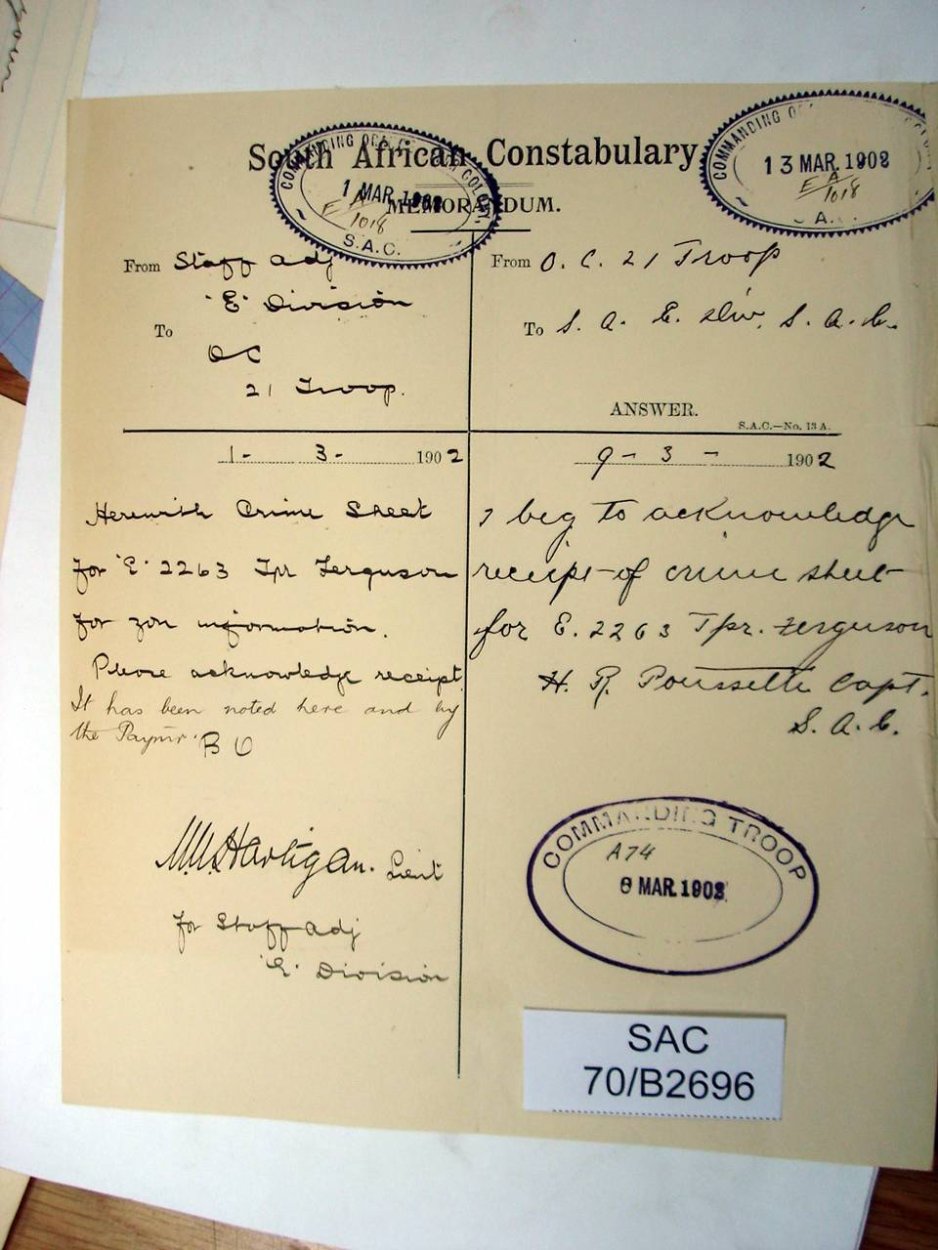 South African Constabulary.
MEMORANDUM.
COMMANDING
1 MAR 1902
E A
1018
S.A.C.
COMMANDING
13 MAR. 1902
E A
1018
A.
From Staff Adj
"E" Division
To
OC
21 Troop.
1- 3- 1902
Herewith Crime Sheet
for "E" 2263 Tpr Ferguson
for yr information.
Please acknowledge receipt.
It has been noted here and by
the Paymr.
Hartigan. Lieut
for Staff Adj
"E" Division
From O. C. 21 Troop
To S. A. E. Div. S. A. C.
ANSWER.
S.A.C.—No. 13 A.
9- 3- 1902
I beg to acknowledge
receipt of crime sheet
for E. 2263 Tpr. Ferguson
H. R. Poussette Capt.
S. A. C.
COMMANDING TROOP
A74
MAR. 1902
SAC
70/B2696